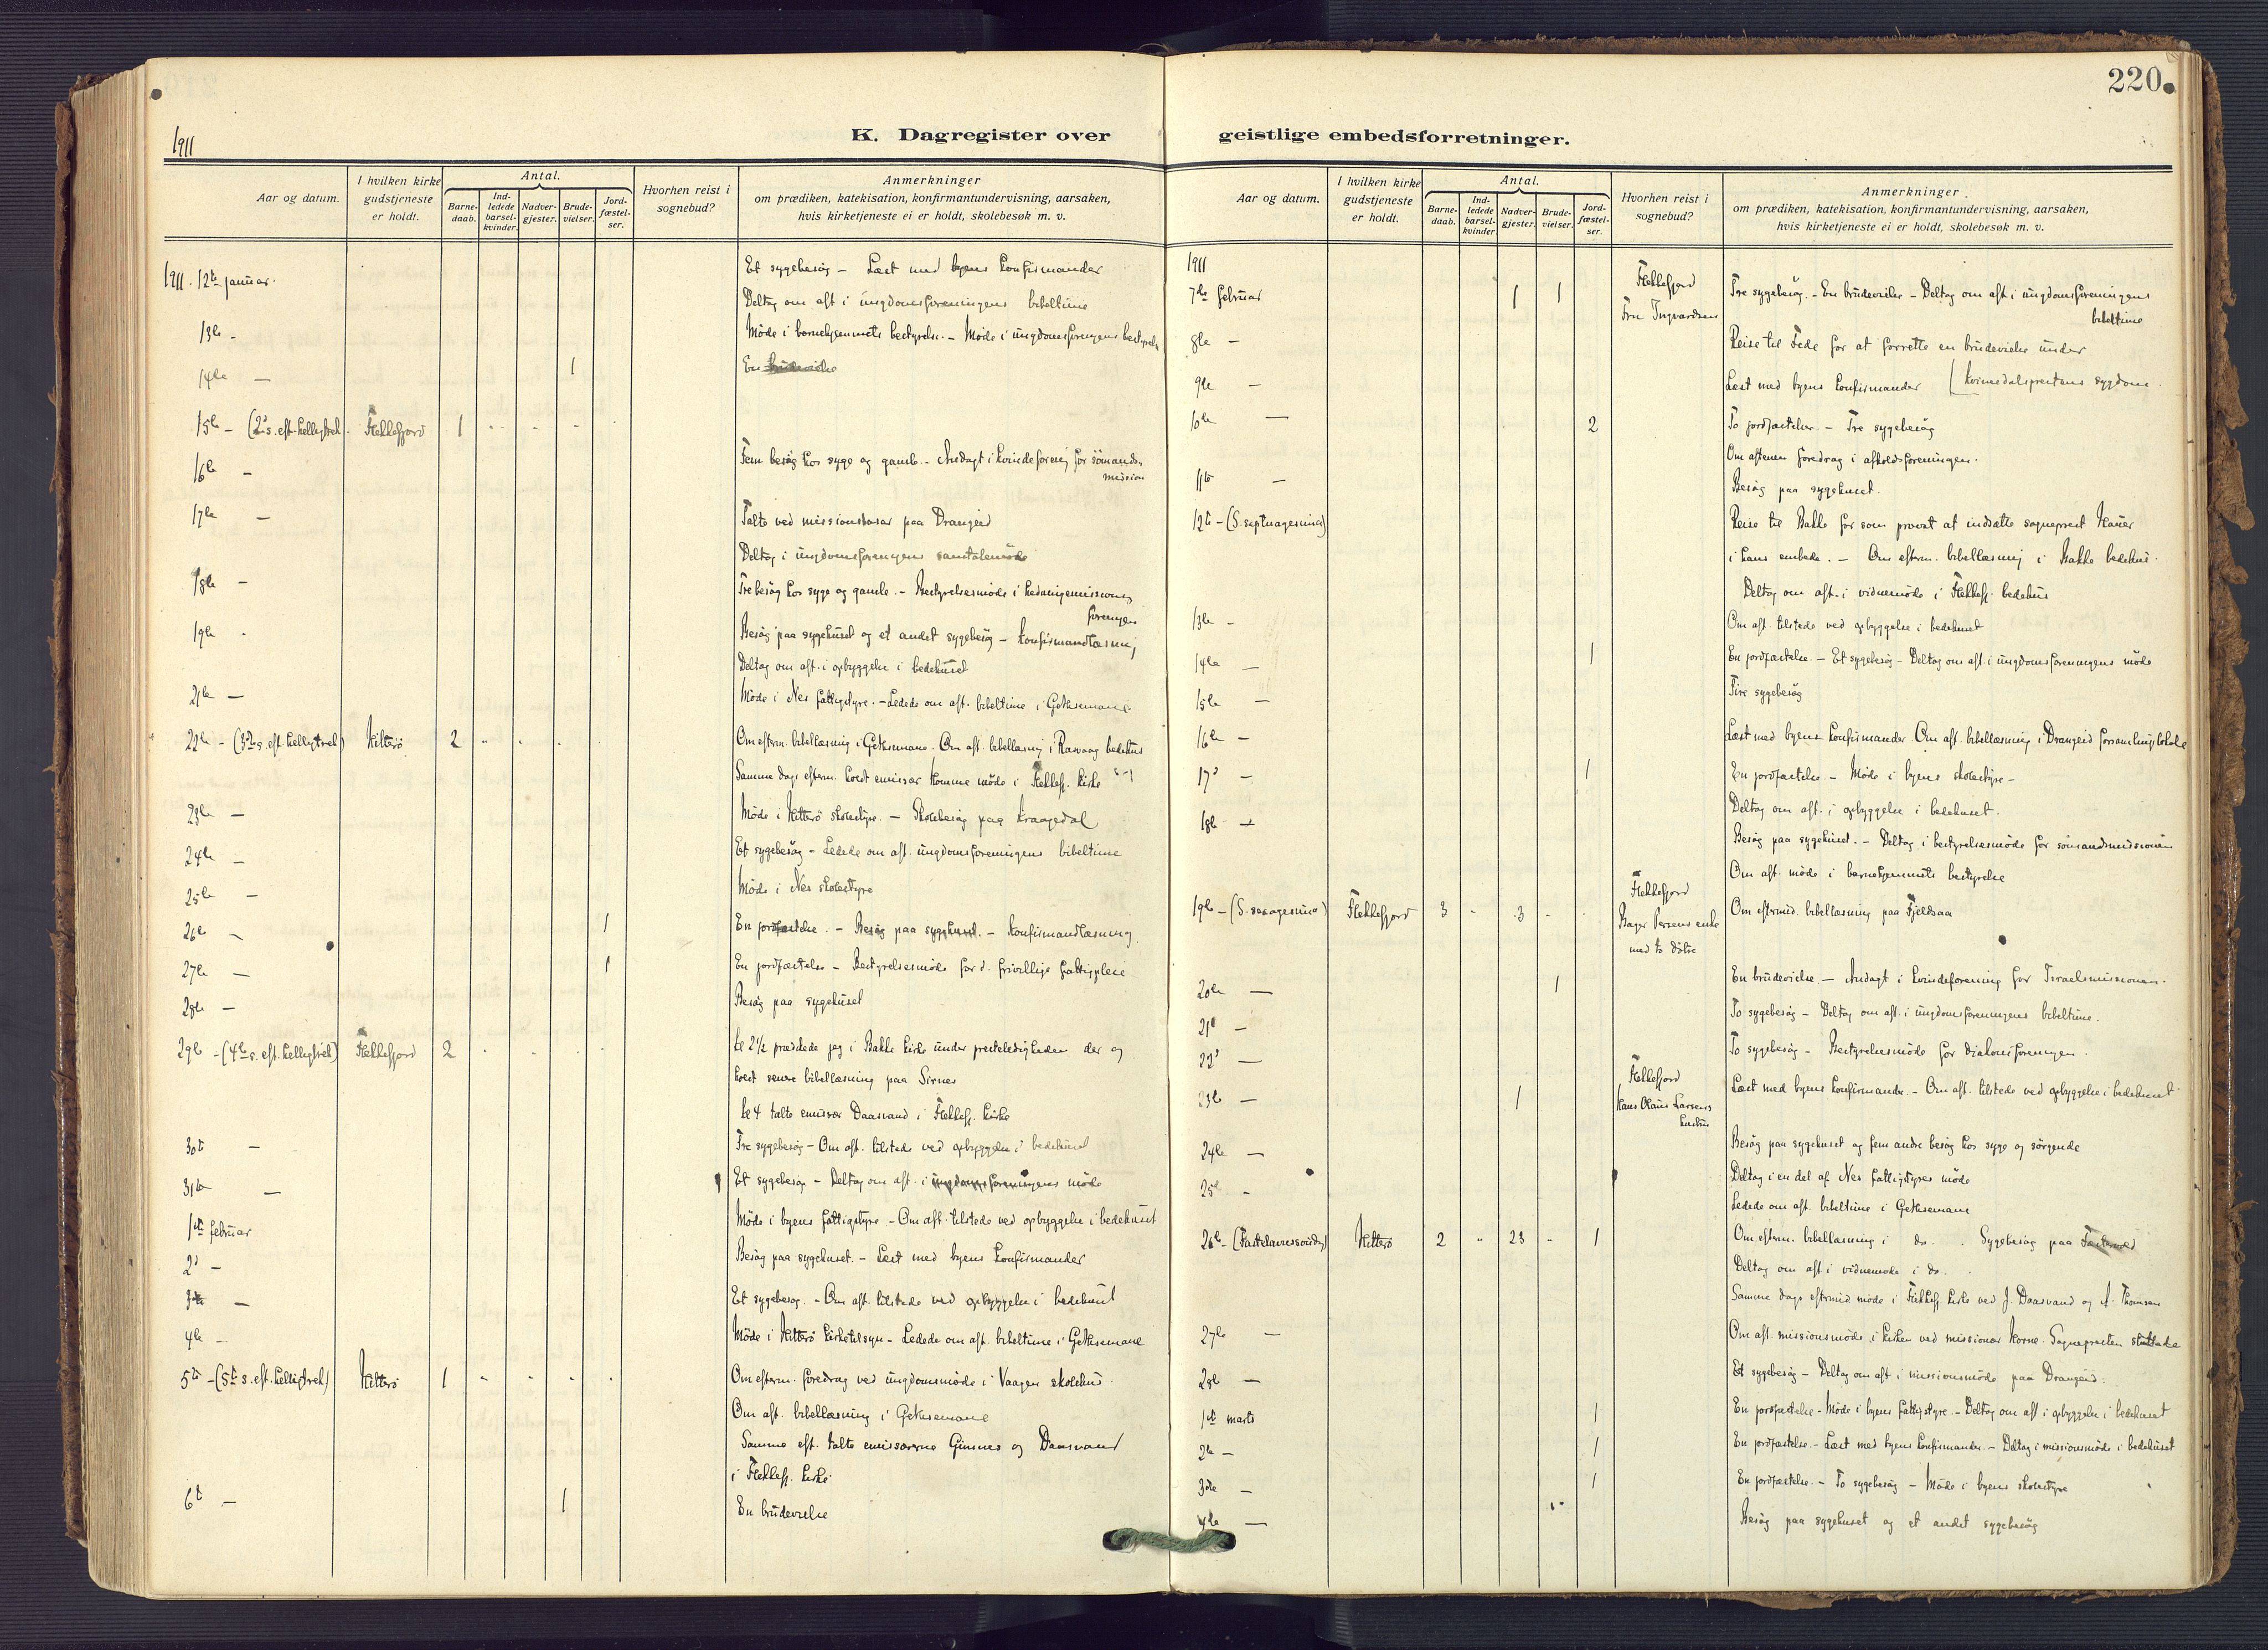 220
1911
K. Dagregister over geistlige embedsforretninger.
Aar og datum.
I hvilken kirke gudstjeneste er holdt.
Antal.
Barnedaab.
Indledede barselkvinder.
Nadvergjester.
Brudevielser.
Jordfæstelser.
Hvorhen reist i sognebud?
Anmerkninger
om prædiken, katekisation, konfirmantundervisning, aarsaken,
hvis kirketjeneste ei er holdt, skolebesøk m. v.
1911. 12te januar. Et sygebesøg – Læst med byens konfirmander
Deltog om aft. i ungdomsforeningens bibeltime
13de - Møde i barnehjemmets bestyrelse. – Møde i ungdomsforeningens bestyrelse
14de — 1 En brudevielse
15de - (2d s. eft. helligtrek. Flekkefjord 1 - - -
16de - Fem besøg hos syge og gamle. – Andagt i kvindeforening for sömands-
mission
17de — Talte ved missionsbasar paa Drangeid
Deltog i ungdomsforeningens samtalemöde
18de - Tre besøg hos syge og gamle. – Bestyrelsesmöde i hedningemissions
foreningen
19de - Besøg paa sygehuset og et andet sygebesøg – Konfirmandlæsning
Deltog om aft. i opbyggelse i bedehuset
21de — Möde i Nes fattigstyre. – Ledede om aft. bibeltime i Gethsemane.
22de - (3die s. eft. helligtrek) Hitterö 2 - - - Om efterm. bibellæsning i Gethsemane. Om aft. bibellæsning i Rasvaag bedehus
Samme dags efterm. holdt emissær Homme möde i Flekkefj. kirke
23de — Möde i Hitterö skolestyre. – Skolebesøg paa Kraagedal
24de — Et sygebesøg – Ledede om aft. ungdomsforeningens bibeltime
25de — Möde i Nes skolestyre
26de - 1 En jordfæstelse. – Besøg paa sygehuset. – Konfirmandlæsning.
27de — 1 En jordfæstelse – Bestyrelsesmöde for d. frivillige fattigpleie
28de — Besøg paa sygehuset
29de - (4de s. eft. helligtrek) Flekkefjord 2 - - - Kl 2½ prædikede jeg i Bakke kirke under presteledigheden der og
holdt senere bibellæsning paa Sirnes
Kl 4 talte emissær Daasvand i Flekkefj. kirke
30te — Tre sygebesøg – Om aft. tilstede ved opbyggelse i bedehuset
31te — Et sygebesøg – Deltog om aft. i ungdomsforeningens möde
1ste februar Möde i byens fattigstyre. – Om aft. tilstede ved opbyggelse i bedehuset
2d — Besøg paa sygehuset. – Læst med byens konfirmander
3die — Et sygebesøg. – Om aft. tilstede ved opbyggelse i bedehuset
4de — Möde i Hitterö kirketilsyn – Ledede om aft. bibeltime i Gethsemane
5te - (5te s. eft. helligtrek) Hitterö 1 - - - - Om efterm. foredrag ved ungdomsmöde i Vaagen skolehus.
Om aft. bibellæsning i Gethsemane
Samme eft. talte emissærerne Gimnes og Daasvand
i Flekkefj. kirke.
6te — 1 En brudevielse
Aar og datum.
I hvilken kirke gudstjeneste er holdt.
Antal.
Barnedaab.
Indledede barselkvinder
Nadvergjester.
Brudevielser.
Jordfæstelser.
Hvorhen reist i sognebud?
Anmerkninger
om prædiken, katekisation, konfirmantundervisning, aarsaken,
hvis kirketjeneste ei er holdt, skolebesøk m. v.
1911
7de februar 1 1 Flekkefjord
Fru Ingvardsen
Tre sygebesøg. – En brudevielse – Deltog om aft. i ungdomsforeningens
bibeltime
8de — Reise til Fede for at forrette en brudevielse under
kvinesdalsprestens sygdom.
9de — Læst med byens konfirmander
10de — 2 To jordfæstelser. – Tre sygebesøg
Om aftenen foredrag i afholdsforeningen.
11te — Besøg paa sygehuset.
12te - (S. septuagesima) Reise til Bakke for som provst at indsætte sogneprest Hauer
i hans embede. – Om efterm. bibellæsning i Bakke bedehus.
Deltog om aft. i vidnemöde i Flekkefj. bedehus
13de - Om aft. tilstede ved opbyggelse i bedehuset
14de — 1 En jordfæstelse. – Et sygebesøg – Deltog om aft. i ungdomsforeningens möde
15de — Fire sygebesøg
16de — Læst med byens konfirmander. Om aft. bibellæsning i Drangeid forsamlingslokale
17d — 1 En jordfæstelse – Möde i byens skolestyre –
Deltog om aft. i opbyggelse i bedehuset.
18de — Besøg paa sygehuset. – Deltog i bestyrelsesmöde for sömandsmissionen
Om aft. möde i barnehjemmets bestyrelse
19de - (S. sexagesima) Flekkefjord 3 - 3 - - Flekkefjord
Bager Persens enke
med to døtre
Om eftermid. bibellæsning paa Fjeldsaa
20de — 1 En brudevielse – Andagt i kvindeforening for Israelsmissionen.
21d — To sygebesøg – Deltog om aft. i ungdomsforeningens bibeltime.
22d — To sygebesøg – Bestyrelsesmöde for diakonforeningen.
23de — 1 Flekkefjord
Hans Olaus Larsens
hustru
Læst med byens konfirmander – Om aft. tilstede ved opbyggelse i bedehuset
24de — Besøg paa sygehuset og fem andre besøg hos syge og sörgende
25de - Deltog i en del af Nes fattigstyres möde
Ledede om aft. bibeltime i Gethsemane
26de - (Fastelavnssöndag) Hitterö 2 - 23 - 1 Om efterm. bibellæsning i do. Sygebesøg paa
Deltog om aft. i vidnemöde i do.
Samme dags eftermid. möde i Flekkefj. kirke ved J. Daasvand og A. Thomsen
27de — Om aft. missionsmöde i kirken ved missionær Korne. Sognepresten sluttede
28de — Et sygebesøg – Deltog om aft. i missionsmöde paa Drangeid.
1ste marts 1 En jordfæstelse – Möde i byens fattigstyre. – Deltog om aft. i opbyggelse i bedehuset
2de — 1 En jordfæstelse. – Læst med byens konfirmander. – Deltog i missionsmöde i bedehuset
3die — 1 En jordfæstelse. – To sygebesøg – Möde i byens skolestyre
4de — Besøg paa sygehuset og et andet sygebesøg